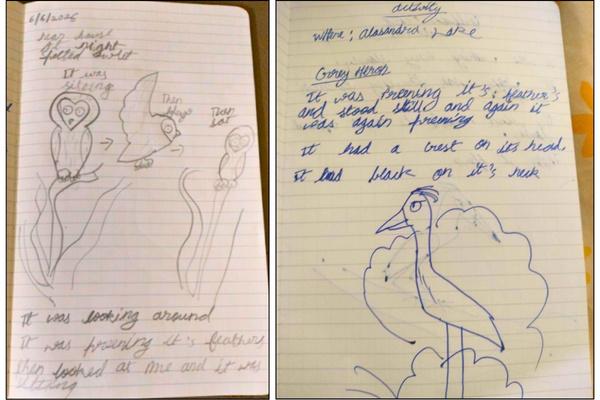 6/6/2025
near house
at Night
spotted owlet
It was
sitting
Then
flew
Then
sat
It was looking around
It was preening it's feathers
then looked at me and it was
sitting
activity
where; Alasandra Lake
Grey Heron
It was Preening it's feather's
and stood still and again it
was again preening
It had a crest on its head,
It had black on it's neck